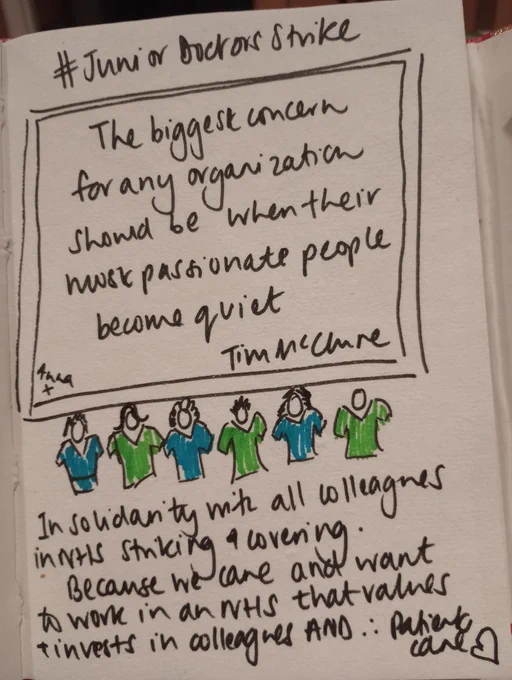 #Junior Doctors Strike
The biggest concern
for any organization
should be when their
most passionate people
become quiet
Tim McClure
Anna
x
In solidarity with all colleagues
in NHS striking & covering.
Because we care and want
to work in an NHS that values
+ invests in colleagues AND ∴ Patient
care